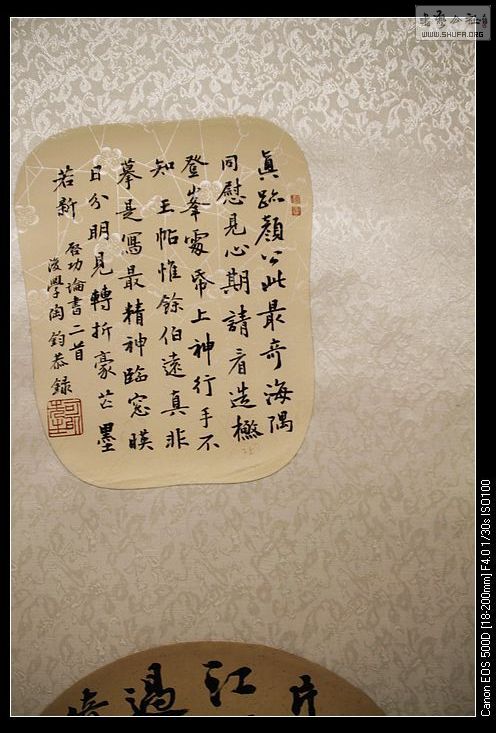 眞跡顏公此最奇海隅
同慰見心期請看造極
登峯處帋上神行手不
知王帖惟餘伯遠真非
摹是寫最精神臨窓暎
日分明見轉折豪芒墨
若新
啓功論書二首
後學陶鈞恭錄
片
江
過
书艺公社
WWW.SHUFA.ORG
Canon EOS 500D [18-200mm] F4.0 1/30s ISO100